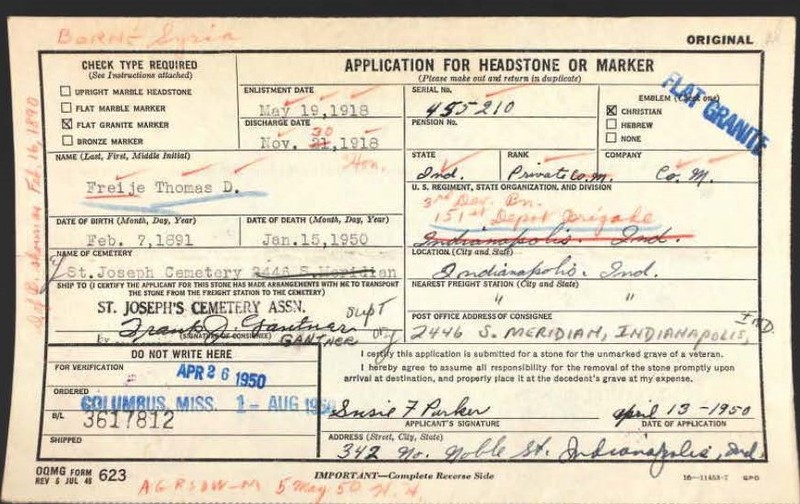 BORNE Syria
ORIGINAL
CHECK TYPE REQUIRED
(See Instructions attached)
UPRIGHT MARBLE HEADSTONE
FLAT MARBLE MARKER
☒ FLAT GRANITE MARKER
BRONZE MARKER
ENLISTMENT DATE
May 19,1918
DISCHARGE DATE
30
Nov. 21,1918
Hon.
APPLICATION FOR HEADSTONE OR MARKER
(Please make out and return in duplicate)
SERIAL No.
455210
PENSION No.
EMBLEM (Check one)
☒ CHRISTIAN
HEBREW
NONE
FLAT GRANITE
NAME (Last, First, Middle Initial)
Freije Thomas D.
STATE
Ind.
RANK
Private
COMPANY
Co. M.
U. S. REGIMENT, STATE ORGANIZATION, AND DIVISION
3rd Dev. Bn.
151st Depot Brigade
Indianapolis. Ind.
DATE OF BIRTH (Month, Day, Year)
Feb. 7,1891
DATE OF DEATH (Month, Day, Year)
Jan.15,1950
NAME OF CEMETERY
St. Joseph Cemetery 2446 S.Meridian
LOCATION (City and State)
Indianapolis. Ind.
SHIP TO (I CERTIFY THE APPLICANT FOR THIS STONE HAS MADE ARRANGEMENTS WITH ME TO TRANSPORT
THE STONE FROM THE FREIGHT STATION TO THE CEMETERY)
ST. JOSEPH'S CEMETERY ASSN.
Supt
Frank J. Gantner
GANTNER
(SIGNATURE OF CONSIGNEE)
NEAREST FREIGHT STATION (City and State)
" "
POST OFFICE ADDRESS OF CONSIGNEE
2446 S. MERIDIAN, INDIANAPOLIS, IND.
DO NOT WRITE HERE
FOR VERIFICATION
APR 26 1950
ORDERED
COLUMBUS, MISS. 1 - AUG 1950
B/L
3617812
SHIPPED
I certify this application is submitted for a stone for the unmarked grave of a veteran.
I hereby agree to assume all responsibility for the removal of the stone promptly upon
arrival at destination, and properly place it at the decedent's grave at my expense.
Susie F Purker
April 13-1950
APPLICANT'S SIGNATURE
DATE OF APPLICATION
ADDRESS (Street, City, State)
342 No. Noble St. Indianapolis, Ind.
OQMG FORM
REV 6 JUL 48
623
IMPORTANT—Complete Reverse Side
16—11453-7 GPO
5 May 50